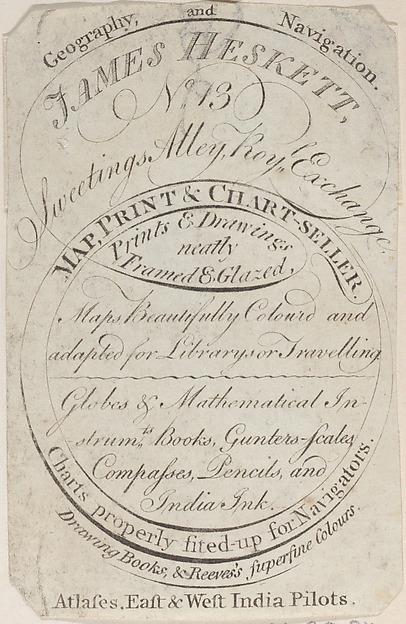 Geography, and Navigation.
JAMES HESKETT,
No. 13
Sweetings Alley, Roy,, l Exchange,
MAP, PRINT & CHART-SELLER.
Prints & Drawings
neatly
Framed & Glazed,
Maps Beautifully Colourd and
adapted for Librarys or Travelling
Globes & Mathematical In-
-strum.ts Books, Gunters-ſcales
Compaſses, Pencils, and
India Ink.
Charts properly fited-up for Navigators.
Drawing Books, & Reeves's ſuperfine Colours.
Atlaſes, Eaſt & Weſt India Pilots.